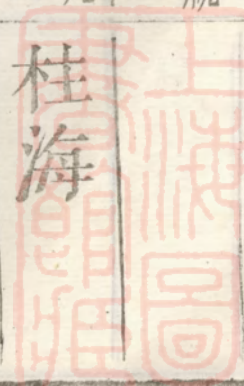 桂海
上海圖
書館藏